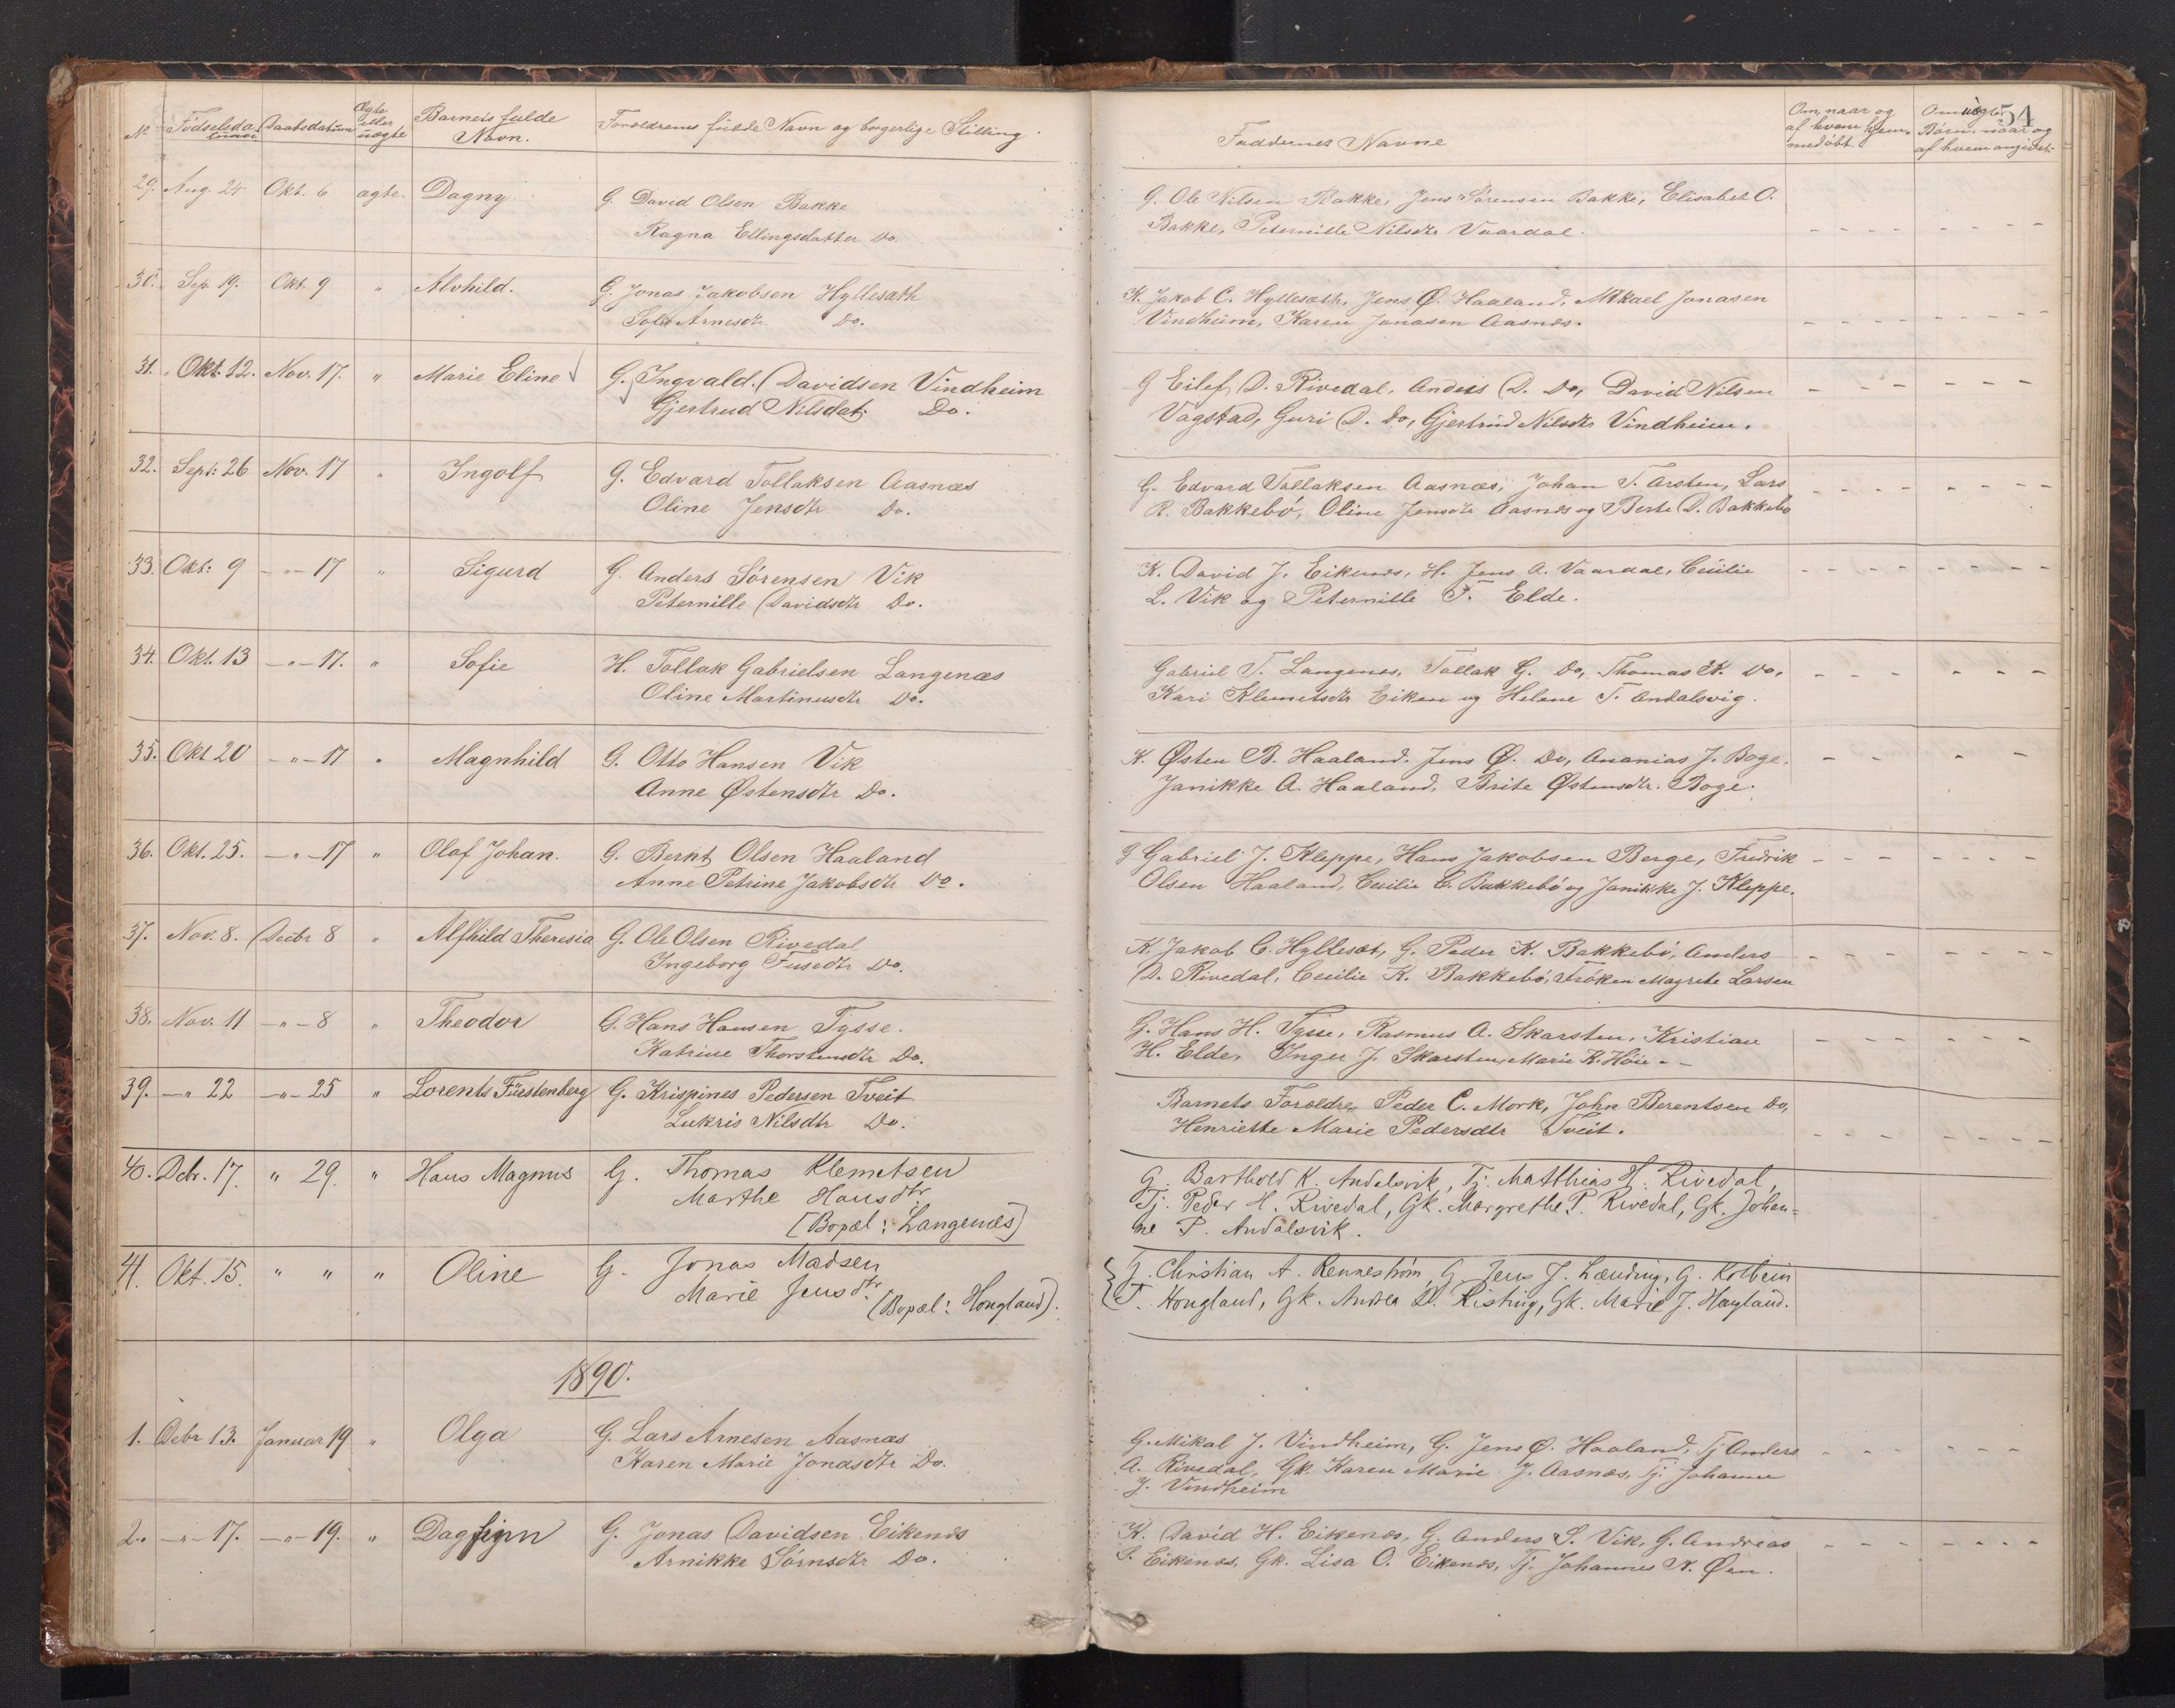 No Fødselsdatum Daabsdatum Ægte eller uægte Barnets fulde Navn. Forældrenes fulde Navn og borgerlige Stilling.
Faddernes Navne
Om, naar og af hvem hjemmedøbt.
Om uægte Børn, naar og af hvem angivet.
54
29. Aug. 24 Okt. 6 ægte. Dagny G. David Olsen Bakke
Ragna Ellingsdatter Do.
G. Ole Nilsen Bakke, Jens Sørensen Bakke, Elisabet O.
Bakke, Peternille Nilsdtr Vaardal.
30. Sep. 19. Okt. 9 " Alvhild. G. Jonas Jakobsen Hyllesæth
Arnesdtr Do.
K. Jakob C. Hyllesæth, Jens Ø. Haaland, Mikael Jonasen
Vindheim, Karen Jonasen Aasnæs.
31. Okt. 12. Nov. 17. " Marie Eline G. Ingvald Davidsen Vindheim
Gjertrud Nilsdat. Do.
G Eilef D. Rivedal, Anders D. Do, David Nilsen
Vagstad, Guri D. Do, Gjertrud Nilsdtr Vindheim.
32. Sept: 26 Nov. 17 " Ingolf G. Edvard Tollaksen Aasnæs
Oline Jensdtr Do.
G. Edvard Tollaksen Aasnæs, Johan T. Arsten, Lars
R. Bakkebø, Oline Jensdtr Aasnæs og Berte D. Bakkebø
33. Okt: 9 -"- 17 " Sigurd G. Anders Sørensen Vik
Peternille Davidsdtr Do.
K. David J. Eikenæs, H. Jens A. Vaardal, Cecilie
L. Vik og Peternille F. Elde.
34. Okt. 13 -"- 17. " Sofie H. Tollak Gabrielsen Langenæs
Oline Martinusdtr Do.
Gabriel T. Langenæs, Tollak G. Do, Thomas K. Do,
Kari Klemetsdtr Eiken og Helene T. Andalsvig.
35. Okt 20 -"- 17 " Magnhild G. Otto Hansen Vik
Anne Østensdtr Do.
K. Østen B. Haaland. Jens Ø. Do, Ananias J. Boge,
Janikke A. Haaland, Brite Østensdtr. Boge.
36. Okt. 25. -"- 17 " Olaf Johan. G. Bernt Olsen Haaland
Anne Petrine Jakobsdtr Do.
G Gabriel J. Kleppe, Hans Jakobsen Berge, Fredrik
Olsen Haaland, Cecilie C. Bakkebø og Janikke J. Kleppe.
37. Nov. 8. Decbr 8 " Alfhild Theresia G. Ole Olsen Rivedal
Ingeborg Do.
K. Jakob C. Hyllesæt, G. Peder K. Bakkebø, Anders
D. Rivedal, Cecilie K. Bakkebø, Frøken Magrete Larsen
38. Nov. 11 -"- 8 " Theodor G. Hans Hansen Tysse.
Katrine Thorstensdtr Do.
G. Hans H. Tysse, Rasmus A. Skarsten, Kristian
H. Elde, Inger J. Skarsten, Marie K. - -
39. -" 22 -"- 25 " Lorents Fürstenberg G. Krispines Pedersen Tveit
Lukris Nilsdtr Do.
Barnets Forældre, Peder C. Mork, John Berentsen Do,
Henriette Marie Pedersdtr Tveit.
40. Dcbr. 17. " 29. " Hans Magnus G. Thomas Klemetsen
Marthe Hansdtr
[Bopæl: Langenæs]
G. Barthold K. Andalsvik, Tj. Matthias H. Rivedal,
Tj. Peder H. Rivedal, Gk. Margrethe P. Rivedal, Gk. Johan=
ne P. Andalsvik.
41. Okt. 15. " " " Oline G. Jonas Madsen
Marie Jensdtr
(Bopæl: Hougland).
G. Christian A. Rennestrøm, G. Jens J. G. Kolbein
T. Hougland, Gk. Andrea D. Risting, Gk. Marie J. Hougland.
1890.
1. Debr 13. Januar 19 " Olga G. Lars Arnesen Aasnæs
Karen Marie Jonasdtr Do.
G. Mikal J. Vindheim, G. Jens Ø. Haaland, Tj Anders
A. Rivedal, Gk. Karen Marie J. Aasnæs, Tj. Johanne
J. Vindheim
2. -"- 17. -"- 19. " Dagfinn G. Jonas Davidsen Eikenæs
Arnikke Sørnsdtr Do.
K. David H. Eikenæs, G. Anders S. Vik, G. Andreas
S. Eikenæs, Gk. Lisa O. Eikenæs, Tj. Johannes N. Øen.